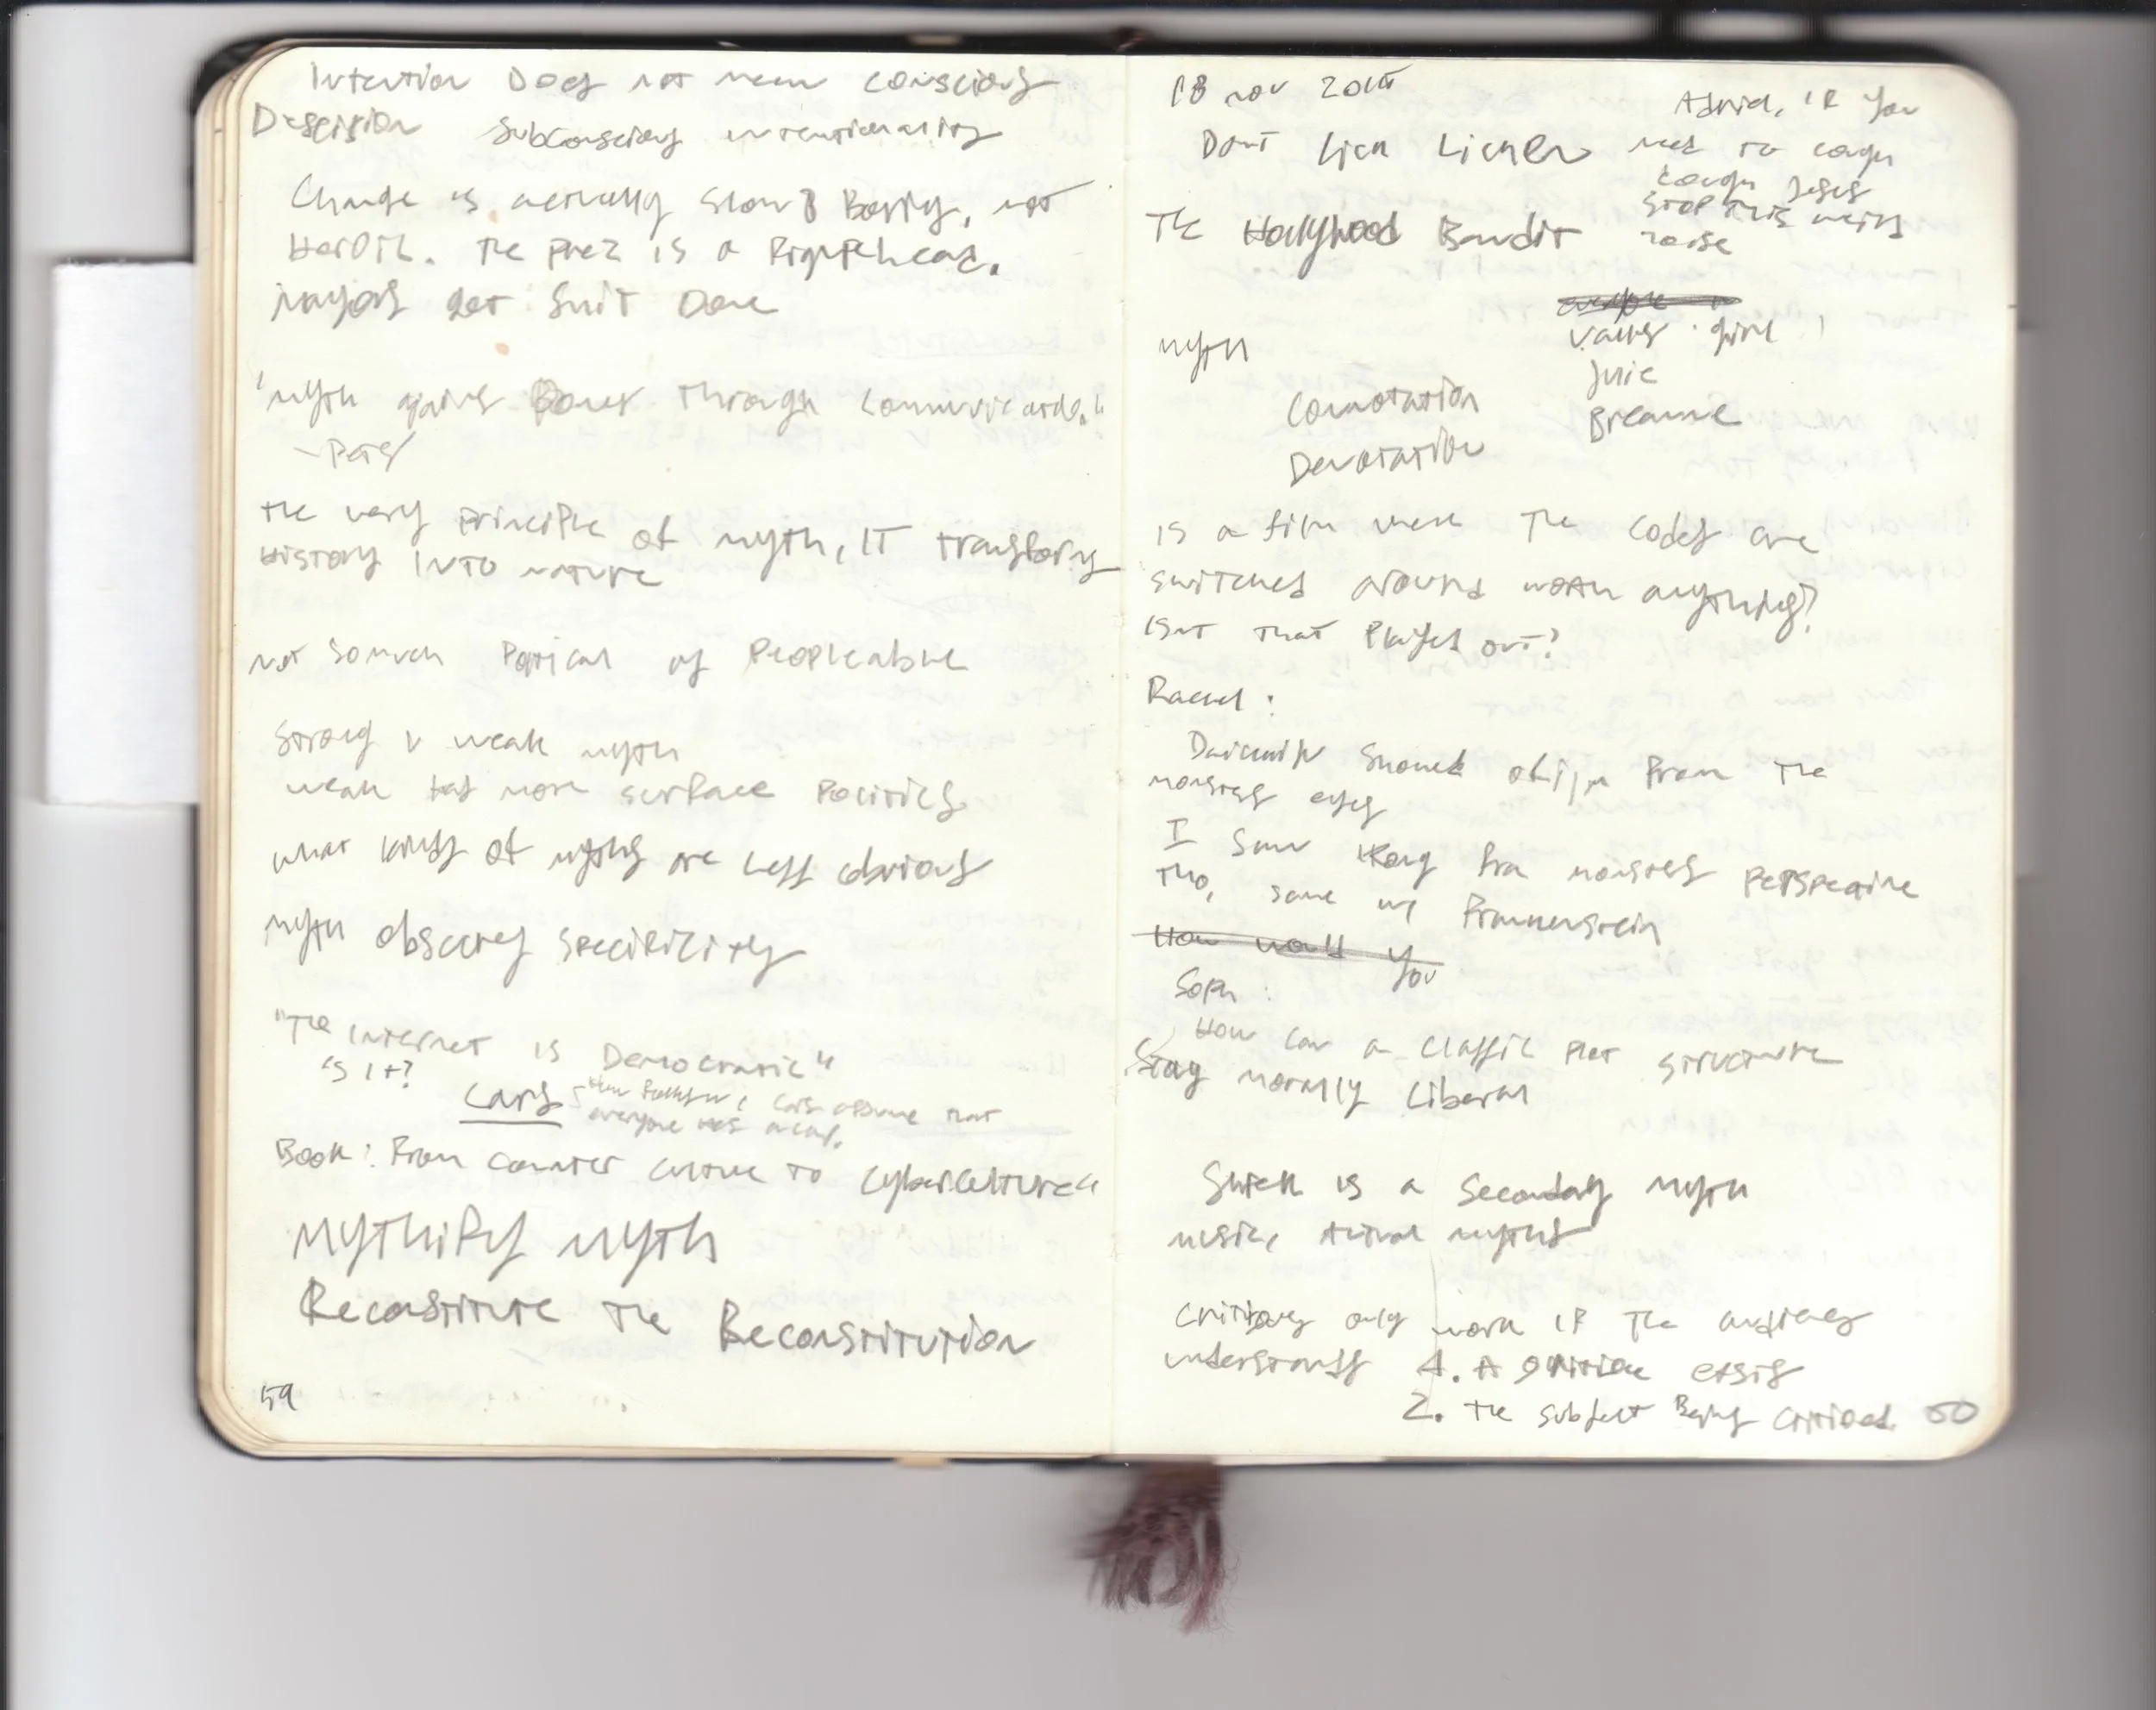 Intention Does not mean conscious
Descision subconscious intentionality
Change is actually slow & Boring, not
Heroic. The Prez is a Figurehead.
mayors get shit Done
"myth gains Power through communication."
- Peter
the very principle of myth, IT transforms
History INTO nature
not so much of People
Strong v weak myth
weak has more surface Politics
what kinds of myths are less obvious
myth obscures specificity
"The internet is Democratic"
is it?
Cars cars assume that
everyone has a car.
Book: From counter culture to cyberculture"
mythify myth
Reconstitute the Reconstitution
59
18 nov
Astrid, if you
need to cough
cough Jesus
stop this weird
noise
Dont lick Lichen
The Hollywood Bandit
Valley girl
Julie
Breanne
myth
Connotation
Denotation
is a film where the codes are
switched around worth anything?
isnt that Played out?
Rachel:
showed from the
monsters eyes
I saw Kong from monsters perspective
tho, same w/ Frankenstein
How would you
Soph:
How can a classic plot structure
Stay morally Liberal
Shrek is a Secondary myth
music, myths
Critiques only work if the audience
understands 1. A critique exists
2. the subject Being critiqued 60